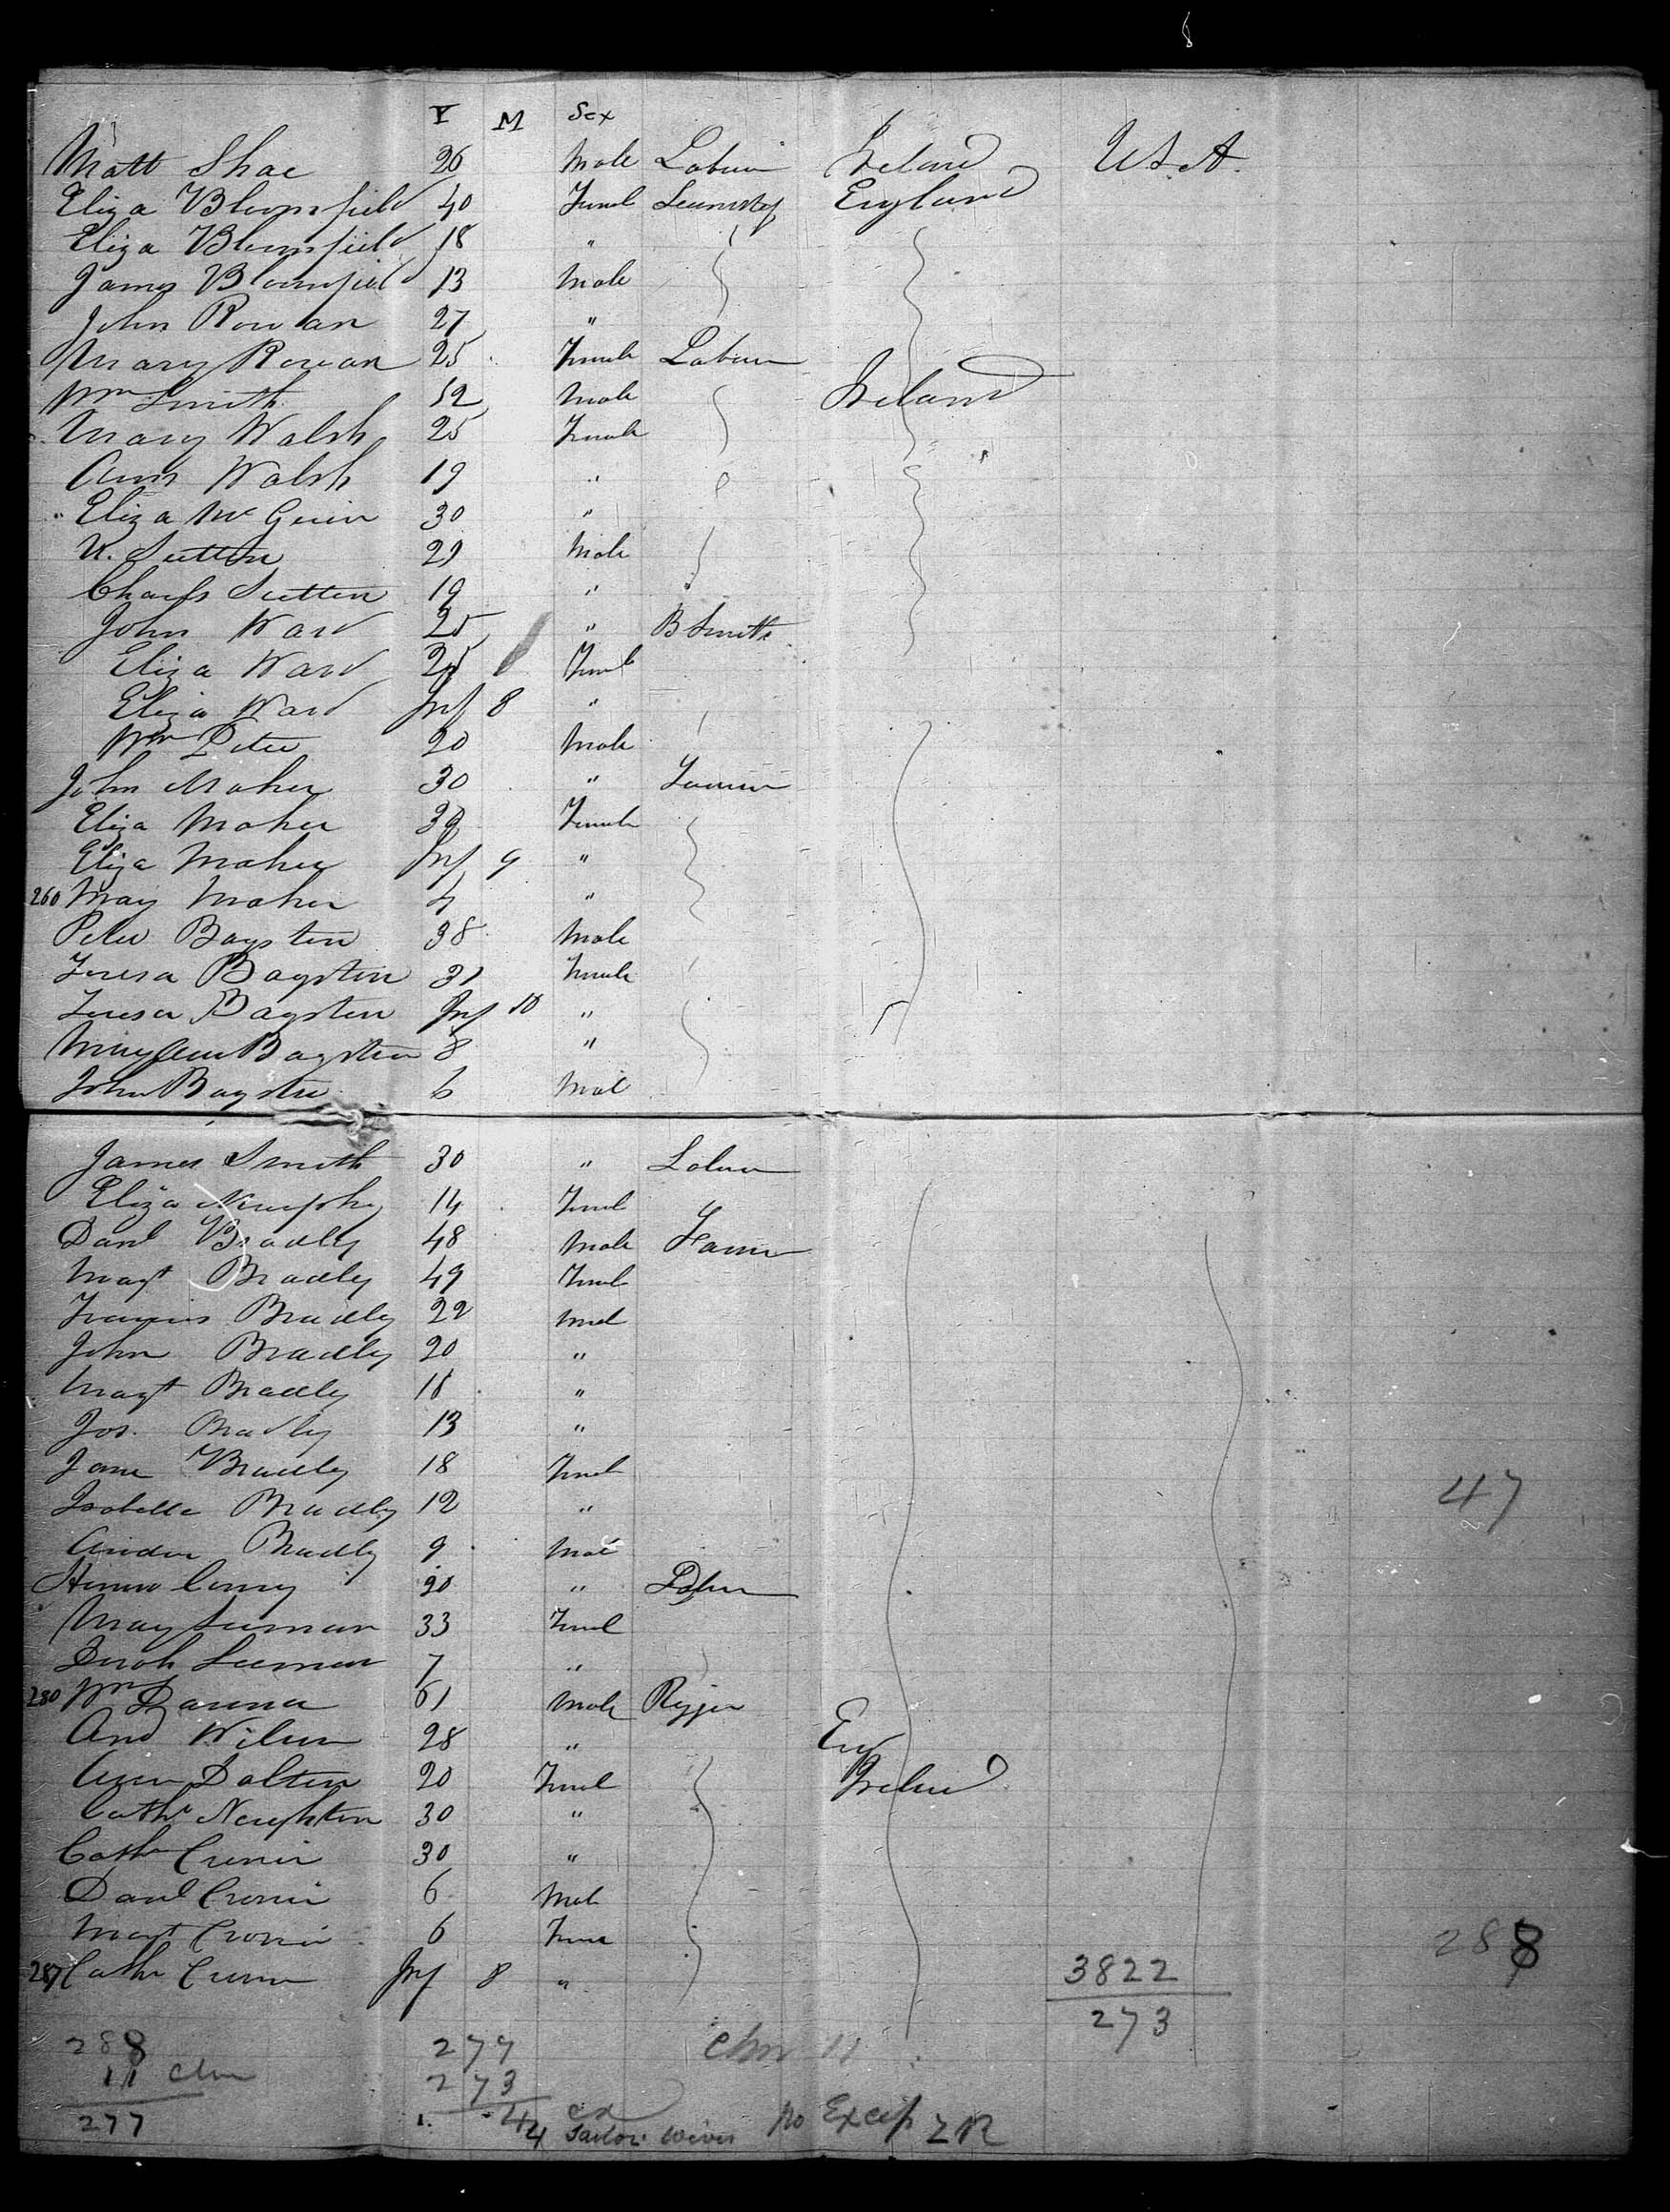 Y M Sex
Matt Shae 26 Male Labour Ireland U.S.A.
Eliza Bloomfield 40 Femal England
Eliza Bloomfield 18 "
James Bloomfield 13 Male
John Rowan 27 "
Mary Rowan 25 Female Labour
Wm Smith 52 Male Ireland
Mary Walsh 25 Female
Ann Walsh 19 "
Eliza Mc 30 "
Sutton 29 Male
Charls Sutton 19 "
John Ward 25 " B Smith
Eliza Ward 25 Feml
Eliza Ward Inf 8 "
Wm Peter 20 Male
John Maher 30 " Farmer
Eliza Maher 30 Female
Eliza Maher Inf 9 "
260 Mary Maher 4 "
Peter Bagsten 38 Male
Teresa Bagsten 31 Female
Teresa Bagsten Inf 10 "
Mary Ann Bagsten 8 "
John Bagsten 6 Mal
James Smith 30 " Labour
Eliza 14 Femal
Danl Bradley 48 Male Farmer
Magt Bradley 49 Femal
Francis Bradley 22 Mal
John Bradley 20 "
Magt Bradley 16 "
Jos. Bradley 13 "
Jane Bradley 18 Femal
47
Isabella Bradley 12 "
Bradley 9 Mal
20 " Labour
Mary Leeman 33 Femal
Leeman 7 "
280 Wm 61 Male Rigger
And Wilson 28 " Eng
Ann Dalton 20 Femal Ireland
Cathe Naughton 30 "
Cathe Cronin 30 "
Danl Cronin 6 Male
Magt Cronin 6 Fema
288
287 Cathe Cronin Inf 8 "
3822
273
288 279 Chn 11
11 Chn 273
277 4 Ex
4 Sailors Wives no Excep Z R